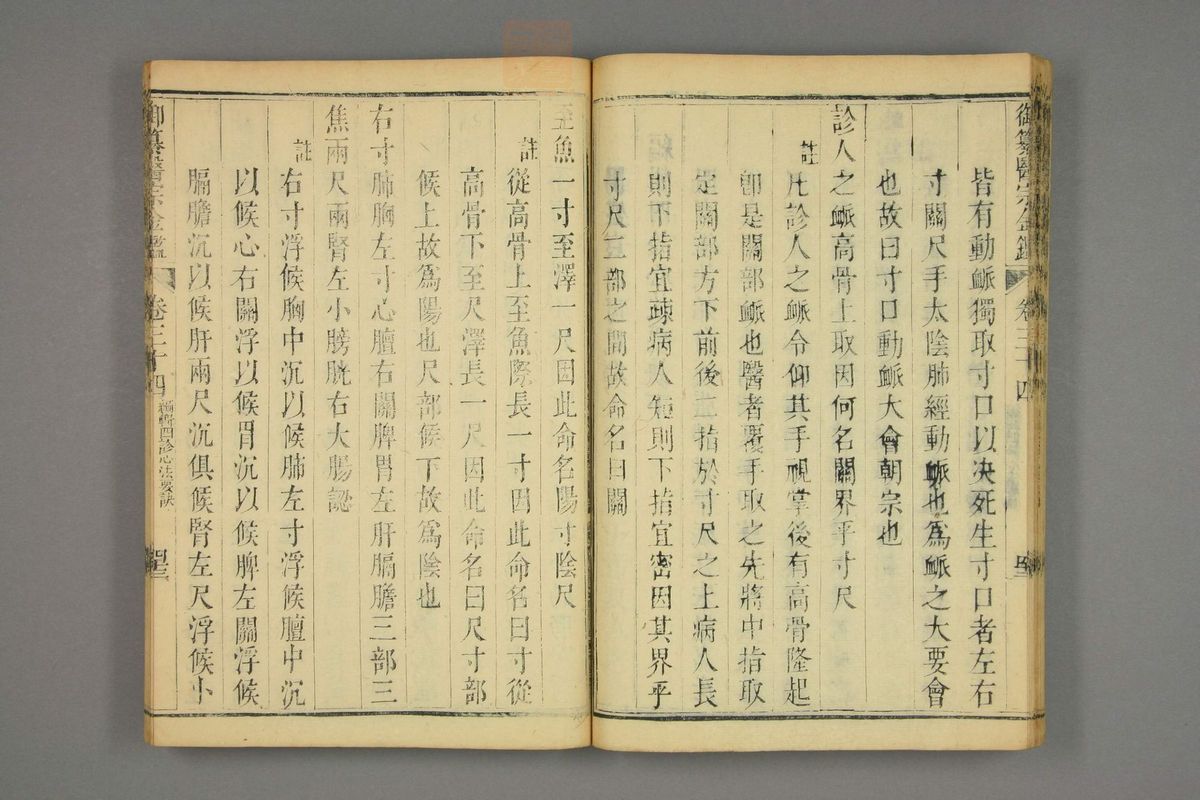 御纂醫宗金鑑 卷三十四
皆有動脈獨取寸口以決死生寸口者左右
寸關尺手太陰肺經動脈也為脈之大要會
也故曰寸口動脈大會朝宗也
診人之脈高骨上取因何名關界乎寸尺
註凡診人之脈令仰其手視掌後有高骨隆起
卽是關部脈也醫者覆手取之先將中指取
定關部方下前後二指於寸尺之上病人長
則下指宜疎病人短則下指宜密因其界乎
寸尺二部之間故命名曰關
至魚一寸至澤一尺因此命名陽寸陰尺
註從高骨上至魚際長一寸因此命名曰寸從
高骨下至尺澤長一尺因此命名曰尺寸部
候上故爲陽也尺部候下故爲陰也
右寸肺胸左寸心膻右關脾胃左肝膈膽三部三
焦兩尺兩腎左小膀胱右大腸認
註右寸浮候胸中沉以候肺左寸浮候膻中沉
以候心右關浮以候胃沉以候脾左關浮候
膈膽沉以候肝兩尺沉俱候腎左尺浮候小
御纂醫宗金鑑 卷三十四 編輯四診心法要訣